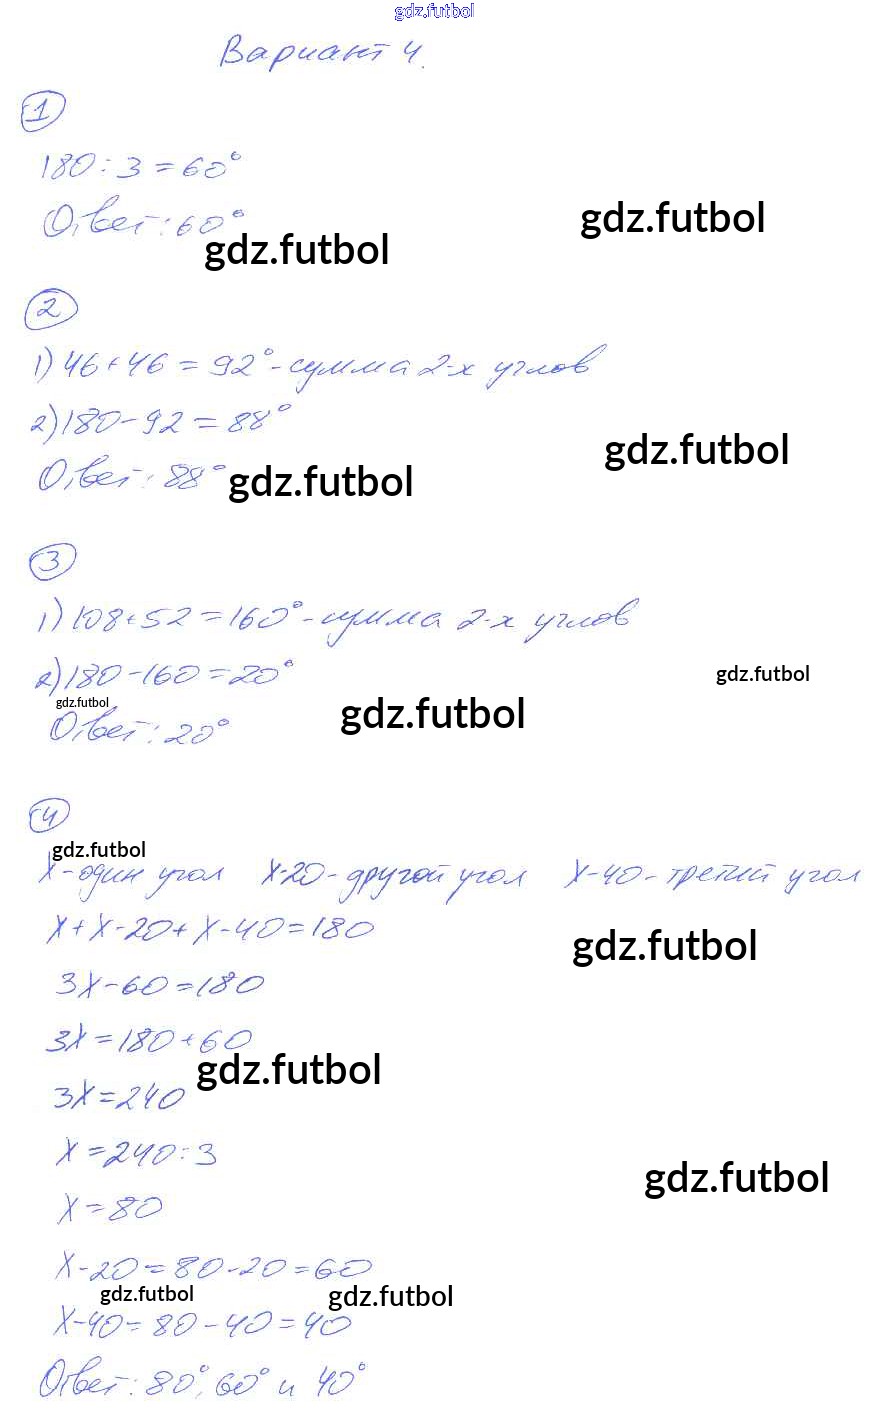 gdz.futbol
Вариант 4.
1
180:3=60°
Ответ: 60°
gdz.futbol
gdz.futbol
2
1) 46+46=92° - сумма 2-х углов
2) 180-92=88°
gdz.futbol
Ответ: 88°
gdz.futbol
3
1) 108+52=160° - сумма 2-х углов
2) 180-160=20°
gdz.futbol
gdz.futbol
gdz.futbol
Ответ: 20°
4
gdz.futbol
X - один угол X-20 - другой угол X-40 - третий угол
X+X-20+X-40=180
gdz.futbol
3X-60=180
3X=180+60
gdz.futbol
3X=240
X=240:3
gdz.futbol
X=80
X-20=80-20=60
gdz.futbol
gdz.futbol
X-40=80-40=40
Ответ: 80°, 60° и 40°